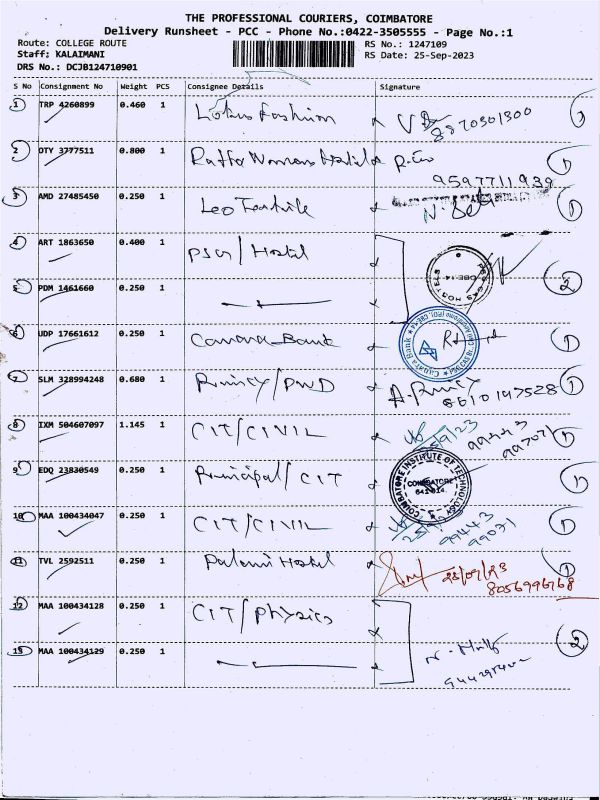 THE PROFESSIONAL COURIERS, COIMBATORE
Delivery Runsheet - PCC - Phone No.:0422-3505555 - Page No.:1
Route: COLLEGE ROUTE
RS No.: 1247109
Staff: KALAIMANI
RS Date: 25-Sep-2023
DRS No.: DCJB124710901
S No Consignment No Weight PCS Consignee Details Signature
1 TRP 4260899 0.460 1 Lotus Fashion
8870301300 1
2 OTY 3777511 0.800 1 Womens Hostel 1
9597711939
3 AMD 27485450 0.250 1 Leo Textile 1
4 ART 1863650 0.400 1 PSG / Hostel
2
5 PDM 1461660 0.250 1
PSG CAS HOSTELS
6 UDP 17661612 0.250 1 Canara Bank 1
Canara Bank
7 SLM 328994248 0.680 1 Princy/PWD A. Princy 1
8610147528
8 IXM 504607097 1.145 1 CIT/CIVIL 1
9 EDQ 23830549 0.250 1 Principal/CIT 1
COIMBATORE INSTITUTE OF TECHNOLOGY
COIMBATORE
641 014.
10 MAA 100434047 0.250 1 CIT/CIVIL 1
99443
99071
11 TVL 2592511 0.250 1 Palani Hostel 25/09/23 1
8056996768
12 MAA 100434128 0.250 1 CIT/Physics
2
13 MAA 100434129 0.250 1